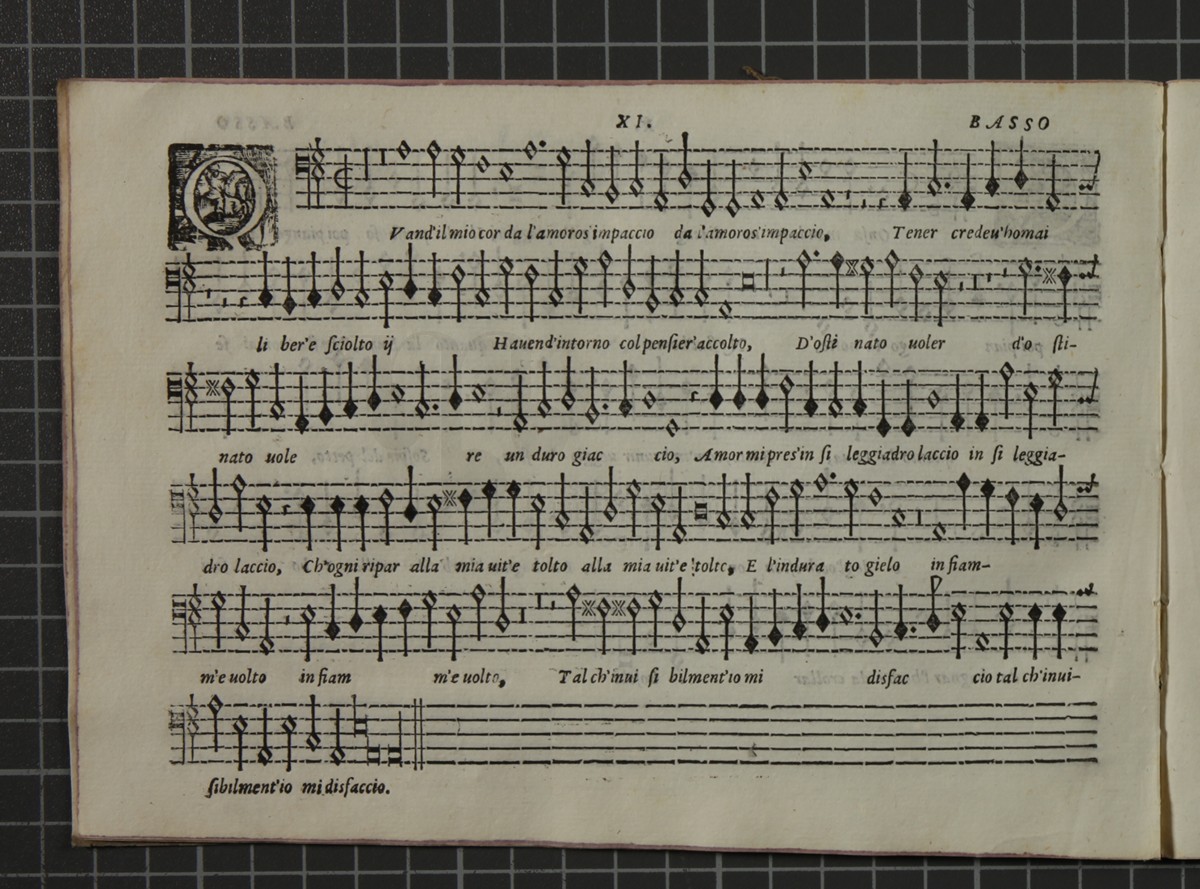 XI. BASSO
QVand'il mio cor da l'amoros'impaccio da l'amoros'impaccio, Tener credeu'homai
li ber'e ſciolto ij Hauend'intorno col penſier'accolto, D'oſti nato uoler d'o ſti-
nato uole re un duro giac cio, Amor mi pres'in ſi leggiadro laccio in ſi leggia-
dro laccio, Ch'ogni ripar alla mia uit'e tolto alla mia uit'e tolto, E l'indura to gielo in fiam-
m'e uolto in fiam m'e uolto, Tal ch'inui ſi bilment'io mi disfac cio tal ch'inui-
ſibilment'io mi disfaccio.